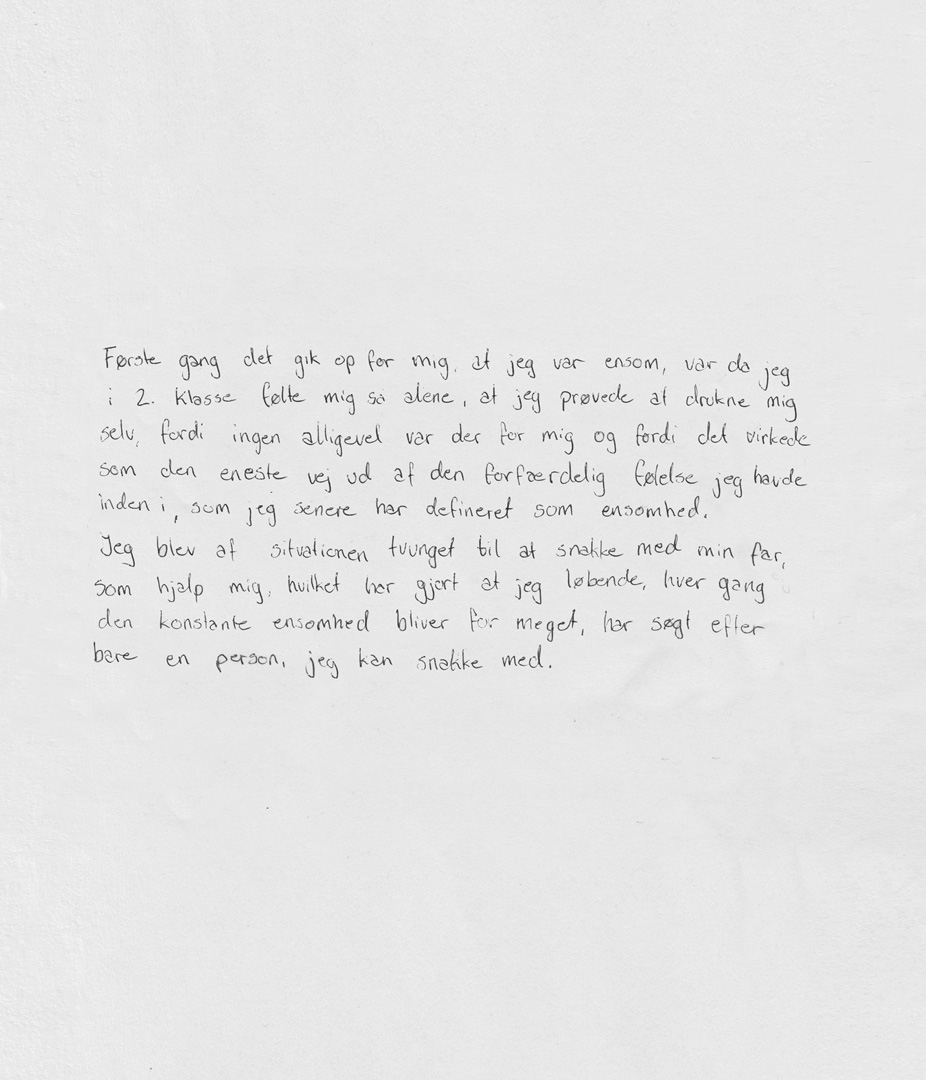 Første gang det gik op for mig, at jeg var ensom, var da jeg
i 2. klasse følte mig så alene, at jeg prøvede at drukne mig
selv, fordi ingen alligevel var der for mig og fordi det virkede
som den eneste vej ud af den forfærdelig følelse jeg havde
inden i, som jeg senere har defineret som ensomhed.
Jeg blev af situationen tvunget til at snakke med min far,
som hjalp mig, hvilket har gjort at jeg løbende, hver gang
den konstante ensomhed bliver for meget, har søgt efter
bare en person, jeg kan snakke med.